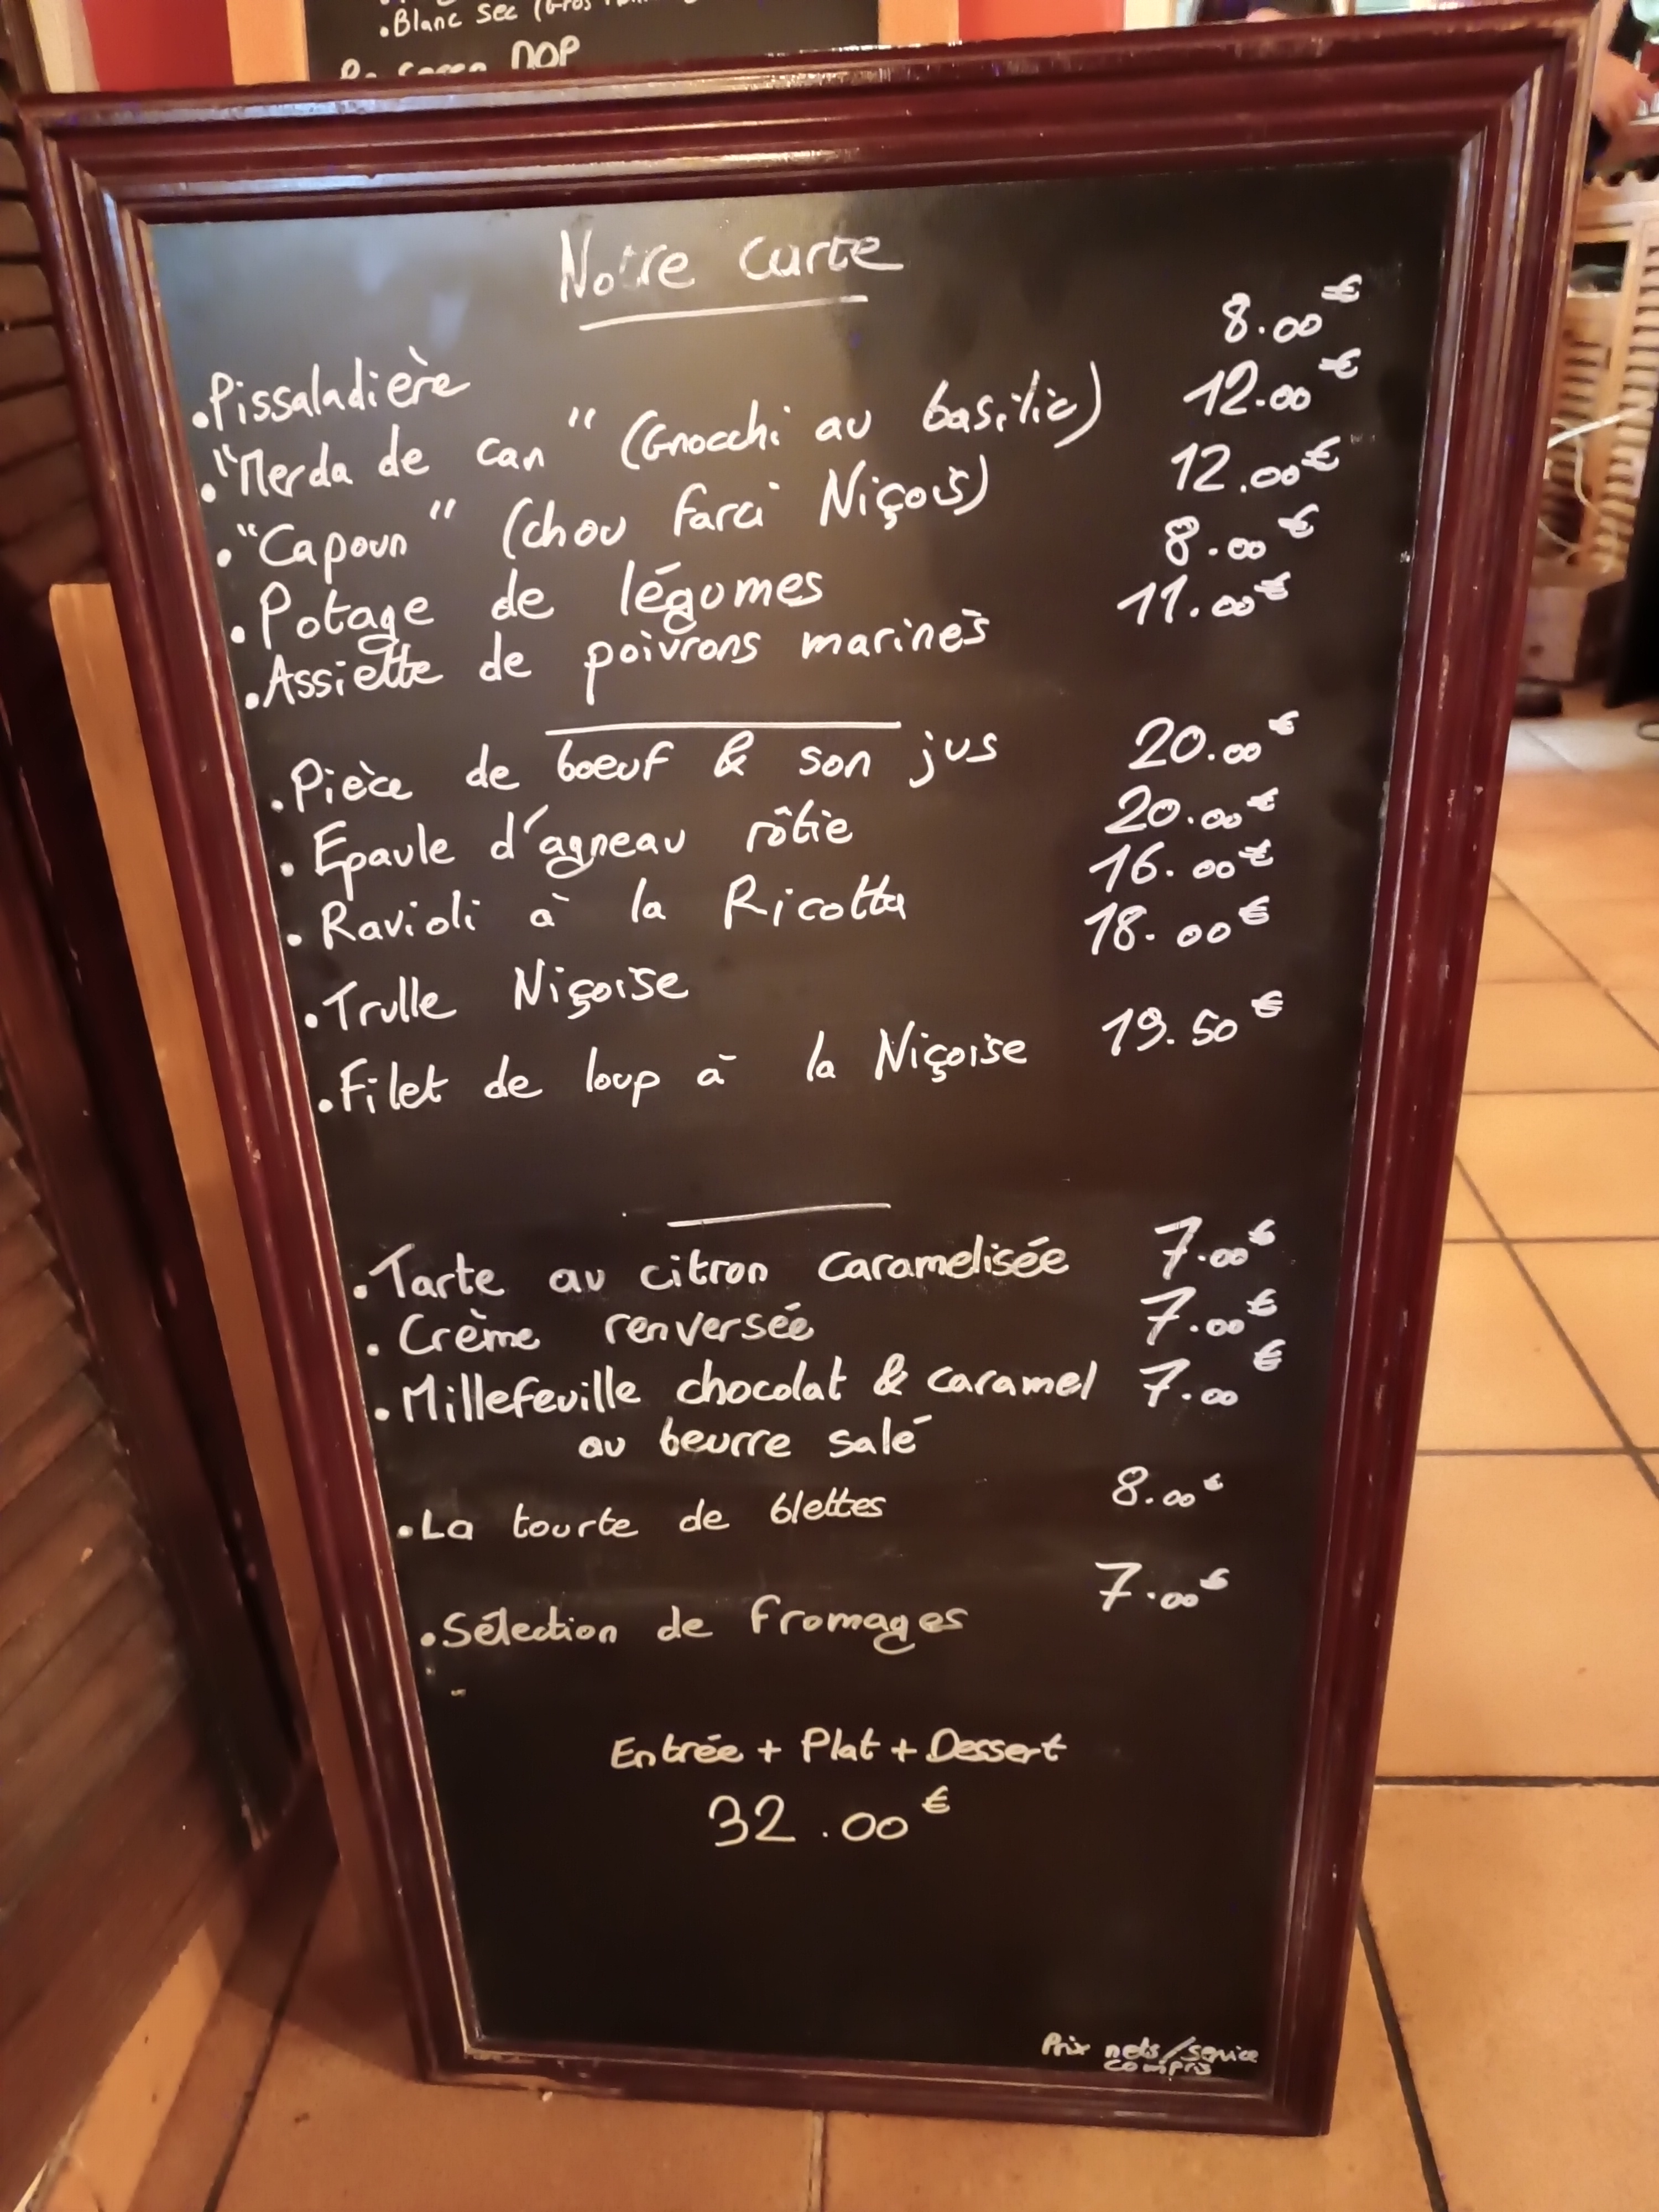 Blanc sec
DOP
Notre carte
.Pissaladière 8.00€
."Merda de can" (Gnocchi au basilic) 12.00€
."Capoun" (chou farci Niçois) 12.00€
.Potage de légumes 8.00€
.Assiette de poivrons marinés 11.00€
.Pièce de boeuf & son jus 20.00€
.Epaule d'agneau rôtie 20.00€
.Ravioli à la Ricotta 16.00€
.Trulle Niçoise 18.00€
.Filet de loup à la Niçoise 19.50€
.Tarte au citron caramelisée 7.00€
.Crème renversée 7.00€
.Millefeuille chocolat & caramel 7.00€
au beurre salé
.La tourte de blettes 8.00€
.Sélection de fromages 7.00€
Entrée + Plat + Dessert
32.00€
Prix nets/service
compris